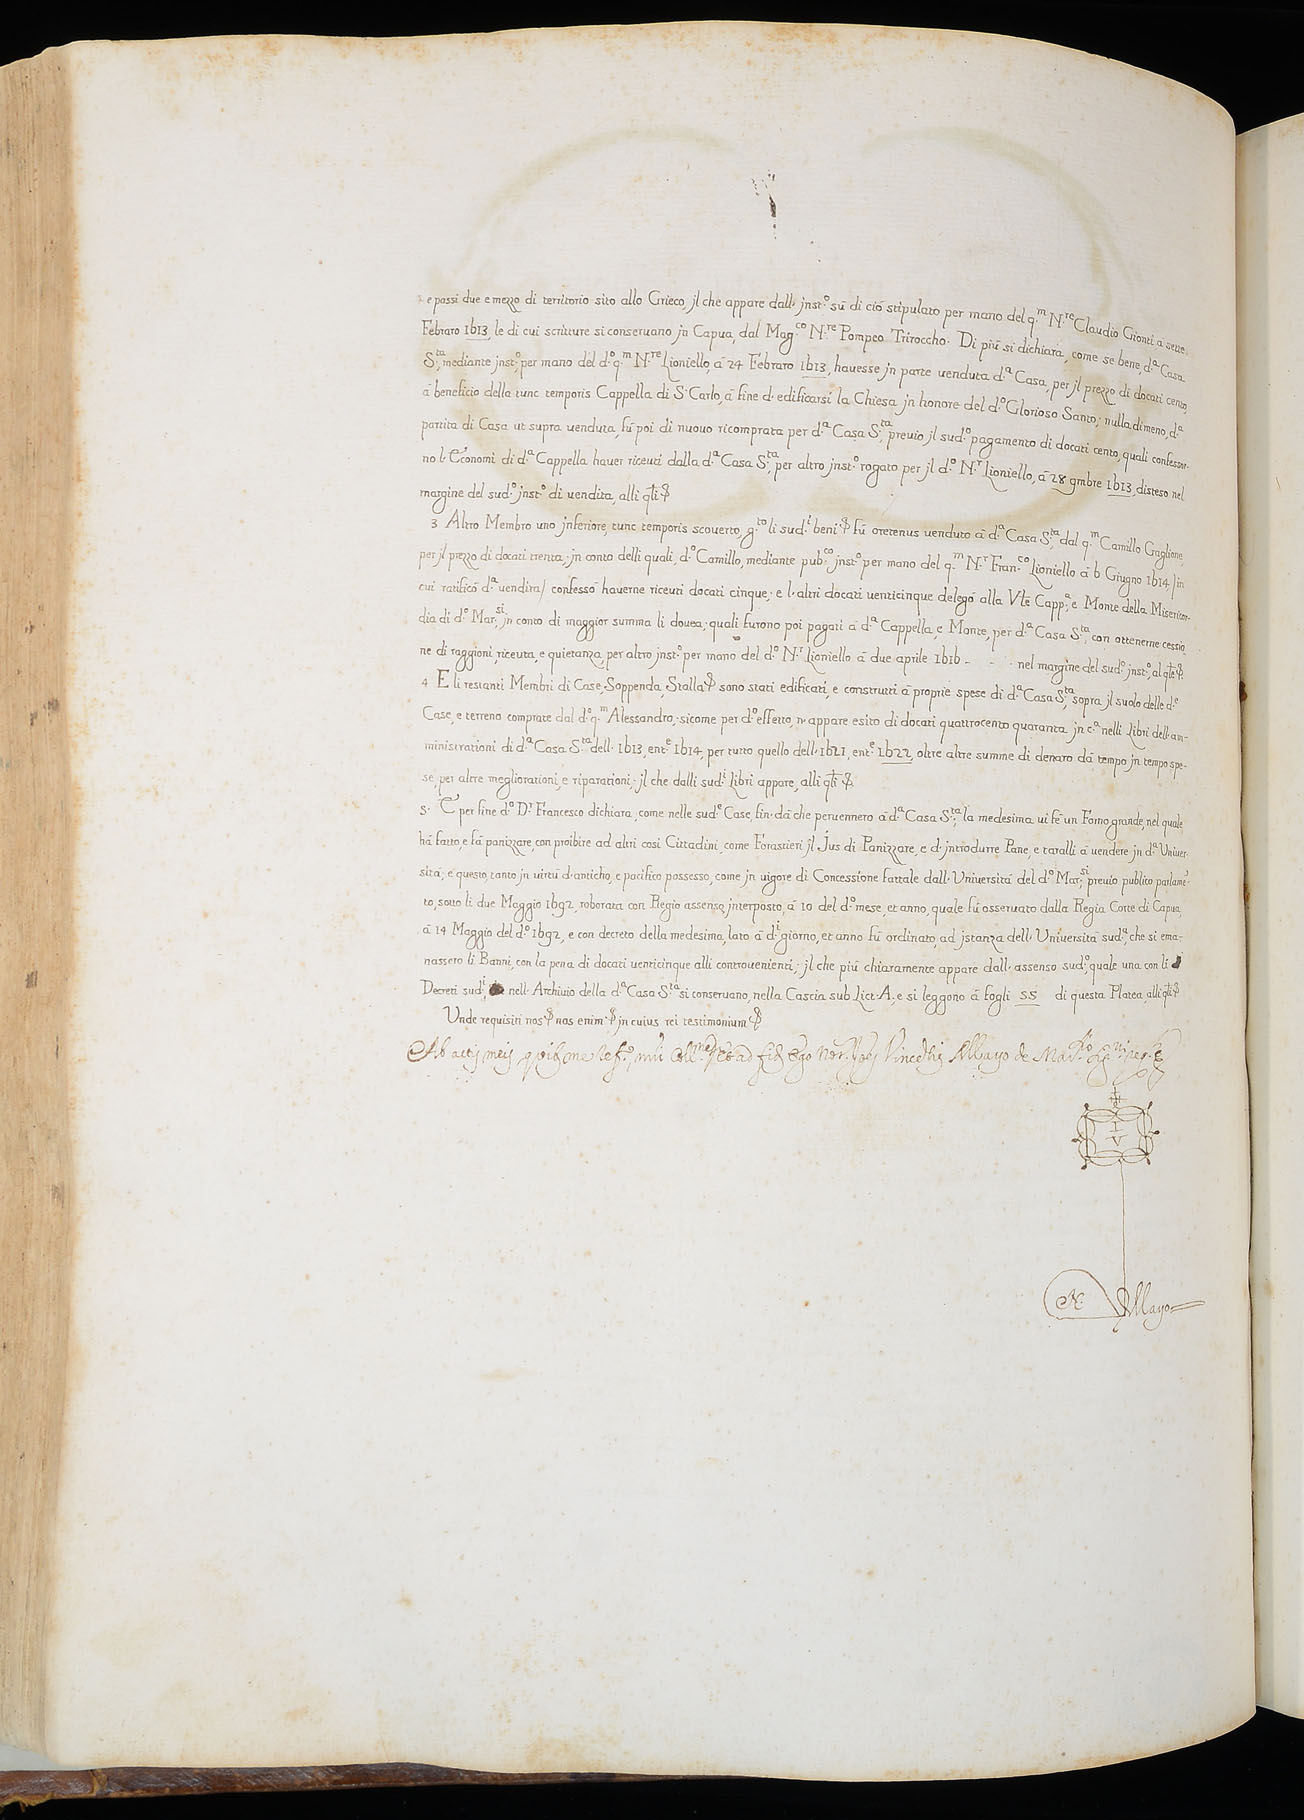 e passi due e mezzo di territorio sito allo Grieco, jl che appare dall' jnst.º sù di ciò stipulato per mano del q.ᵐ N.ʳᵉ Claudio Gionti à sette
Febraro 1613, le di cui scritture si conseruano jn Capua, dal Mag.ᶜᵒ N.ʳᵉ Pompeo Triroccho. Di più si dichiara, come se bene, d.ª Casa
S.ᵗᵃ, mediante jnst.º, per mano del d.º q.ᵐ N.ʳᵉ Lioniello, à 24 Febraro 1613, hauesse jn parte uenduta d.ª Casa, per jl prezzo di docati cento,
à beneficio della tunc temporis Cappella di S. Carlo, à fine d' edificarsi la Chiesa jn honore del d.º Glorioso Santo; nulladimeno, d.ª
partita di Casa ut supra uenduta, fù poi di nuouo ricomprata per d.ª Casa S.ᵗᵃ, preuio jl sud.º pagamento di docati cento, quali confessor-
no l' Economi di d.ª Cappella hauer riceuti dalla d.ª Casa S.ᵗᵃ, per altro jnst.º rogato per jl d.º N.ʳ Lioniello, à 28 9mbre 1613, disteso nel
margine del sud.º jnst.º di uendita, alli qli &
3 Altro Membro uno jnferiore, tunc temporis scouerto, g.ᵗᵒ li sud.ⁱ beni & fù oretenus venduto à d.ª Casa S.ᵗᵃ, dal q.ᵐ Camillo Graglione,
per jl prezzo di docati trenta; jn conto delli quali, d.º Camillo, mediante pub.ᶜᵒ jnst.º per mano del q.ᵐ N.ʳ Fran.ᶜᵒ Lioniello à 6 Giugno 1614 /in
cui ratificò d.ª uendita/ confessò hauerne riceuti docati cinque; e l' altri docati uenticinque delegò alla Vtē Capp.ª, e Monte della Misericor-
dia di d.º Mar.ˢⁱ, jn conto di maggior summa li douea; quali furono poi pagati à d.ª Cappella, e Monte, per d.ª Casa S.ᵗᵃ, con ottenerne cessio-
ne di raggioni, riceuta, e quietanza, per altro jnst.º per mano del d.º N.ʳ Lioniello à due aprile 1616 - - · nel margine del sud.º jnst.º, al qle &
4 E li restanti Membri di Case, Soppenda, Stalla & sono stati edificati, e construtti à proprie spese di d.ª Casa S.ᵗᵃ, sopra jl suolo delle d.ᵉ
Case, e terreno comprate dal d.º q.ᵐ Alessandro; sicome per d.º effetto, n' appare esito di docati quattrocento quaranta jn c.ª nelli Libri dell' am-
ministrationi di d.ª Casa S.ᵗᵃ dell' 1613, ent.ᵉ 1614, per tutto quello dell' 1621, ent.ᵉ 1622, oltre altre summe di denaro dà tempo jn tempo spe-
se, per altre megliorationi, e riparationi; jl che dalli sud.ⁱ Libri appare, alli qli &
5. E per fine d.º D.ʳ Francesco dichiara, come nelle sud.ᵉ Case, fin' dà che peruennero à d.ª Casa S.ᵗᵃ, la medesima ui fè un Forno grande, nel quale
hà fatto, e fà panizzare, con proibire ad altri così Cittadini, come Forastieri jl Jus di Panizzare, e d' jntrodurre Pane, e taralli à uendere jn d.ª Uniuer-
sità; e questo, tanto jn uirtù d' anticho, e pacifico possesso, come jn uigore di Concessione fattale dall' Uniuersità del d.º Mar.ˢⁱ, preuio publico parlamē-
to, sotto li due Maggio 1692, roborata con Regio assenso, jnterposto, à 10 del d.º mese, et anno, quale fù osseruato dalla Regia Corte di Capua,
à 14 Maggio del d.º 1692, e con decreto della medesima, lato à d.ⁱ giorno, et anno fù ordinato, ad jstanza dell' Uniuersità sud.ª, che si ema-
nassero li Banni, con la pena di docati uenticinque alli controuenienti; jl che più chiaramente appare dall' assenso sud.º, quale una con li
Decreti sud.ⁱ, nell' Archiuio della d.ª Casa S.ᵗᵃ si conseruano, nella Cascia sub Lict. A, e si leggono à fogli 55 di questa Platea, alli qli &
Unde requisiti nos & nos enim & jn cuius rei testimonium &
Ab actis meis Ego Not. Mayo de
I V
N Mayo